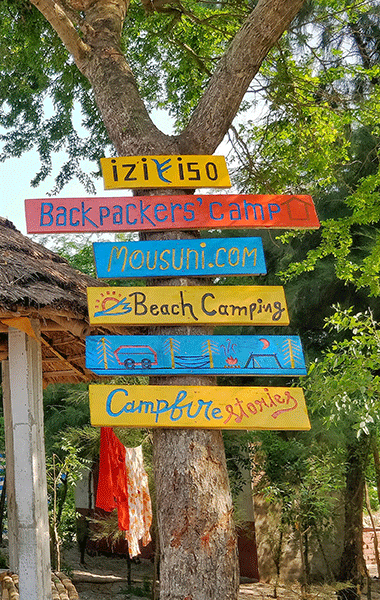 iziʞiso
Backpackers' Camp
Mousuni.com
Beach Camping
Campfire stories